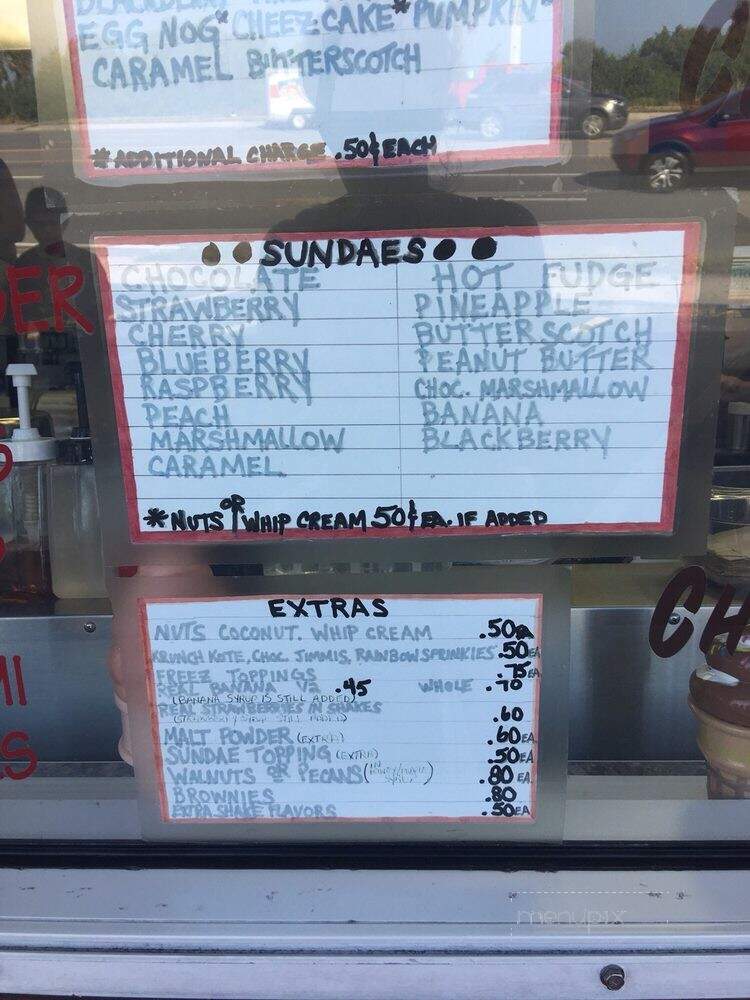 EGG NOG* CHEEZCAKE* PUMPKIN*
CARAMEL BUTTERSCOTCH
* ADDITIONAL CHARGE .50¢ EACH
SUNDAES
CHOCOLATE
STRAWBERRY
CHERRY
BLUEBERRY
RASPBERRY
PEACH
MARSHMALLOW
CARAMEL
HOT FUDGE
PINEAPPLE
BUTTERSCOTCH
PEANUT BUTTER
CHOC. MARSHMALLOW
BANANA
BLACKBERRY
* NUTS OR WHIP CREAM 50¢ EA. IF ADDED
EXTRAS
NUTS COCONUT. WHIP CREAM .50
KRUNCH KOTE, CHOC. JIMMIS, RAINBOW SPRINKLES .50 EA
FREEZ TOPPINGS .75 EA
REAL BANANA ½ .45 WHOLE .70
(BANANA SYRUP IS STILL ADDED)
REAL STRAWBERRIES IN SHAKES .60
(STRAWBERRY SYRUP STILL ADDED)
MALT POWDER (EXTRA) .60 EA
SUNDAE TOPPING (EXTRA) .50 EA
WALNUTS OR PECANS .80 EA
BROWNIES .80
EXTRA SHAKE FLAVORS .50 EA
ER
MI
S
CH
menupix